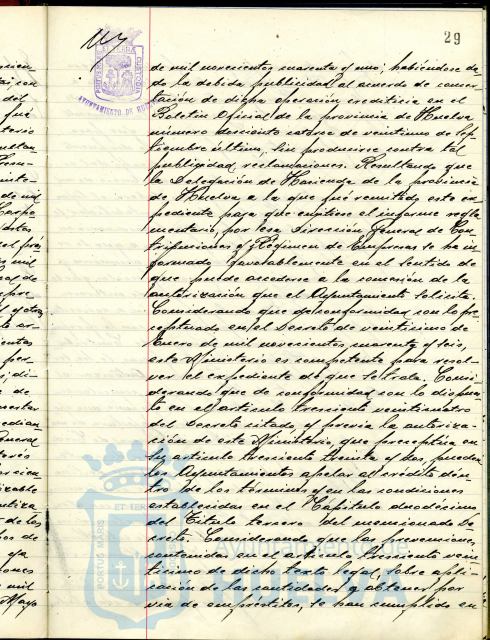 29
PORTUS MARIS ET TERRAE CUSTODIA
AYUNTAMIENTO DE HUELVA
de mil novecientos cuarenta y uno; habiéndose da-
do la debida publicidad al acuerdo de concer-
tación de dicha operación crediticia en el
Boletín Oficial de la provincia de Huelva
número doscientos catorce de veintiuno de Sep-
tiembre último, sin producirse contra tal
publicidad, reclamaciones. Resultando que
la Delegación de Hacienda de la provincia
de Huelva a la que fué remitido este ex-
pediente para que emitiese el informe regla-
mentario, por esa Dirección General de Con-
tribuciones y Régimen de Empresas se ha in-
formado favorablemente en el sentido de
que puede accederse a la concesión de la
autorización que el Ayuntamiento solicita.
Considerando que de conformidad con lo pre-
ceptuado en el Decreto de veinticinco de
Enero de mil novecientos cuarenta y seis,
este Ministerio es competente para resol-
ver el expediente de que se trata. Consi-
derando que de conformidad con lo dispues-
to en el artículo trescientos veinticuatro
del Decreto citado, y previa la autoriza-
ción de este Ministerio, que preceptúa en
su artículo trescientos treinta y dos, pueden
los Ayuntamientos apelar al crédito den-
tro de los términos y en las condiciones
establecidas en el Capítulo duodécimo
del Título tercero del mencionado De-
creto. Considerando que las prevenciones
contenidas en el artículo trescientos vein-
tinueve de dicho texto legal, sobre apli-
cación de las cantidades a obtener por
vía de empréstitos, se han cumplido en
Ayuntamiento de
HUELVA